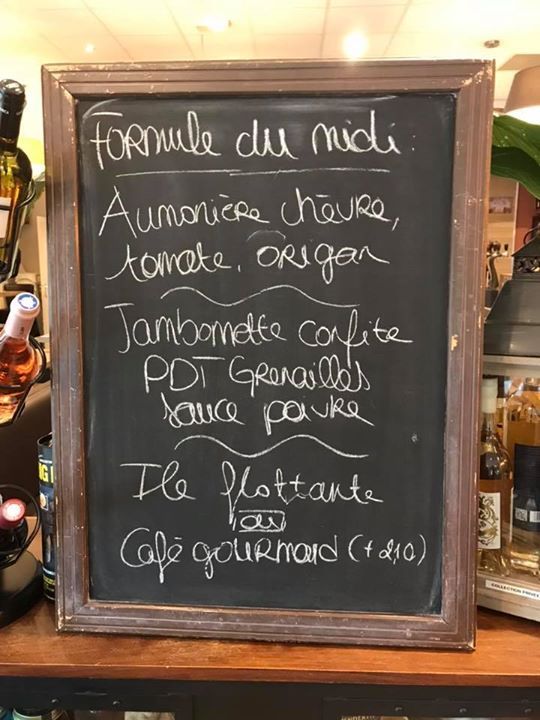 Formule du midi :
Aumonière chèvre,
tomate, origan
Jambonnette confite
PDT Grenailles
sauce poivre
Ile flottante
ou
Café gourmand (+ 2,10)
COLLECTION PRIVÉE